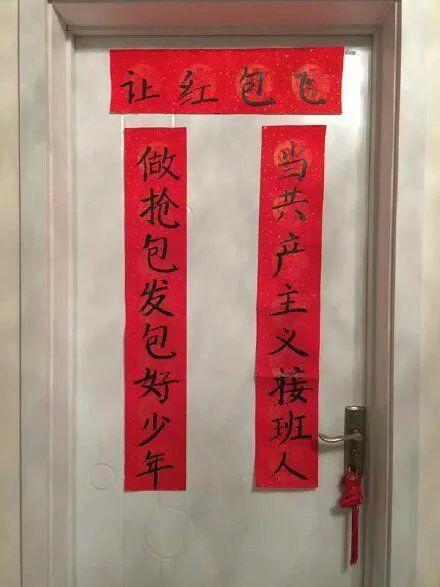 让红包飞
当共产主义接班人
做抢包发包好少年